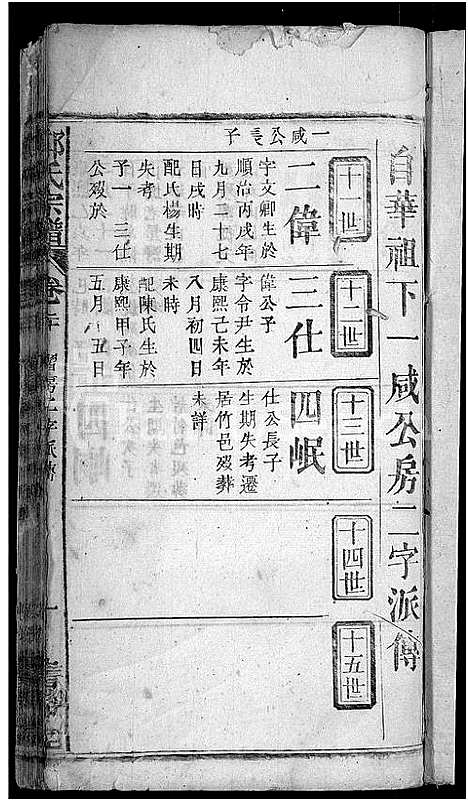 自華祖下一咸公房二字派傳
十一世
十二世
十三世
十四世
十五世
一咸公長子
二偉
字文卿生於
順治丙戌年
九月二十七
日戌時
配氏楊生期
失考
子一 三仕
公歿於
三仕
偉公子
字令尹生於
康熙己未年
八月初四日
未時
配陳氏生於
康熙甲子年
五月八五日
四岷
仕公長子
生期失考遷
居竹邑歿葬
未詳
氏宗譜
卷